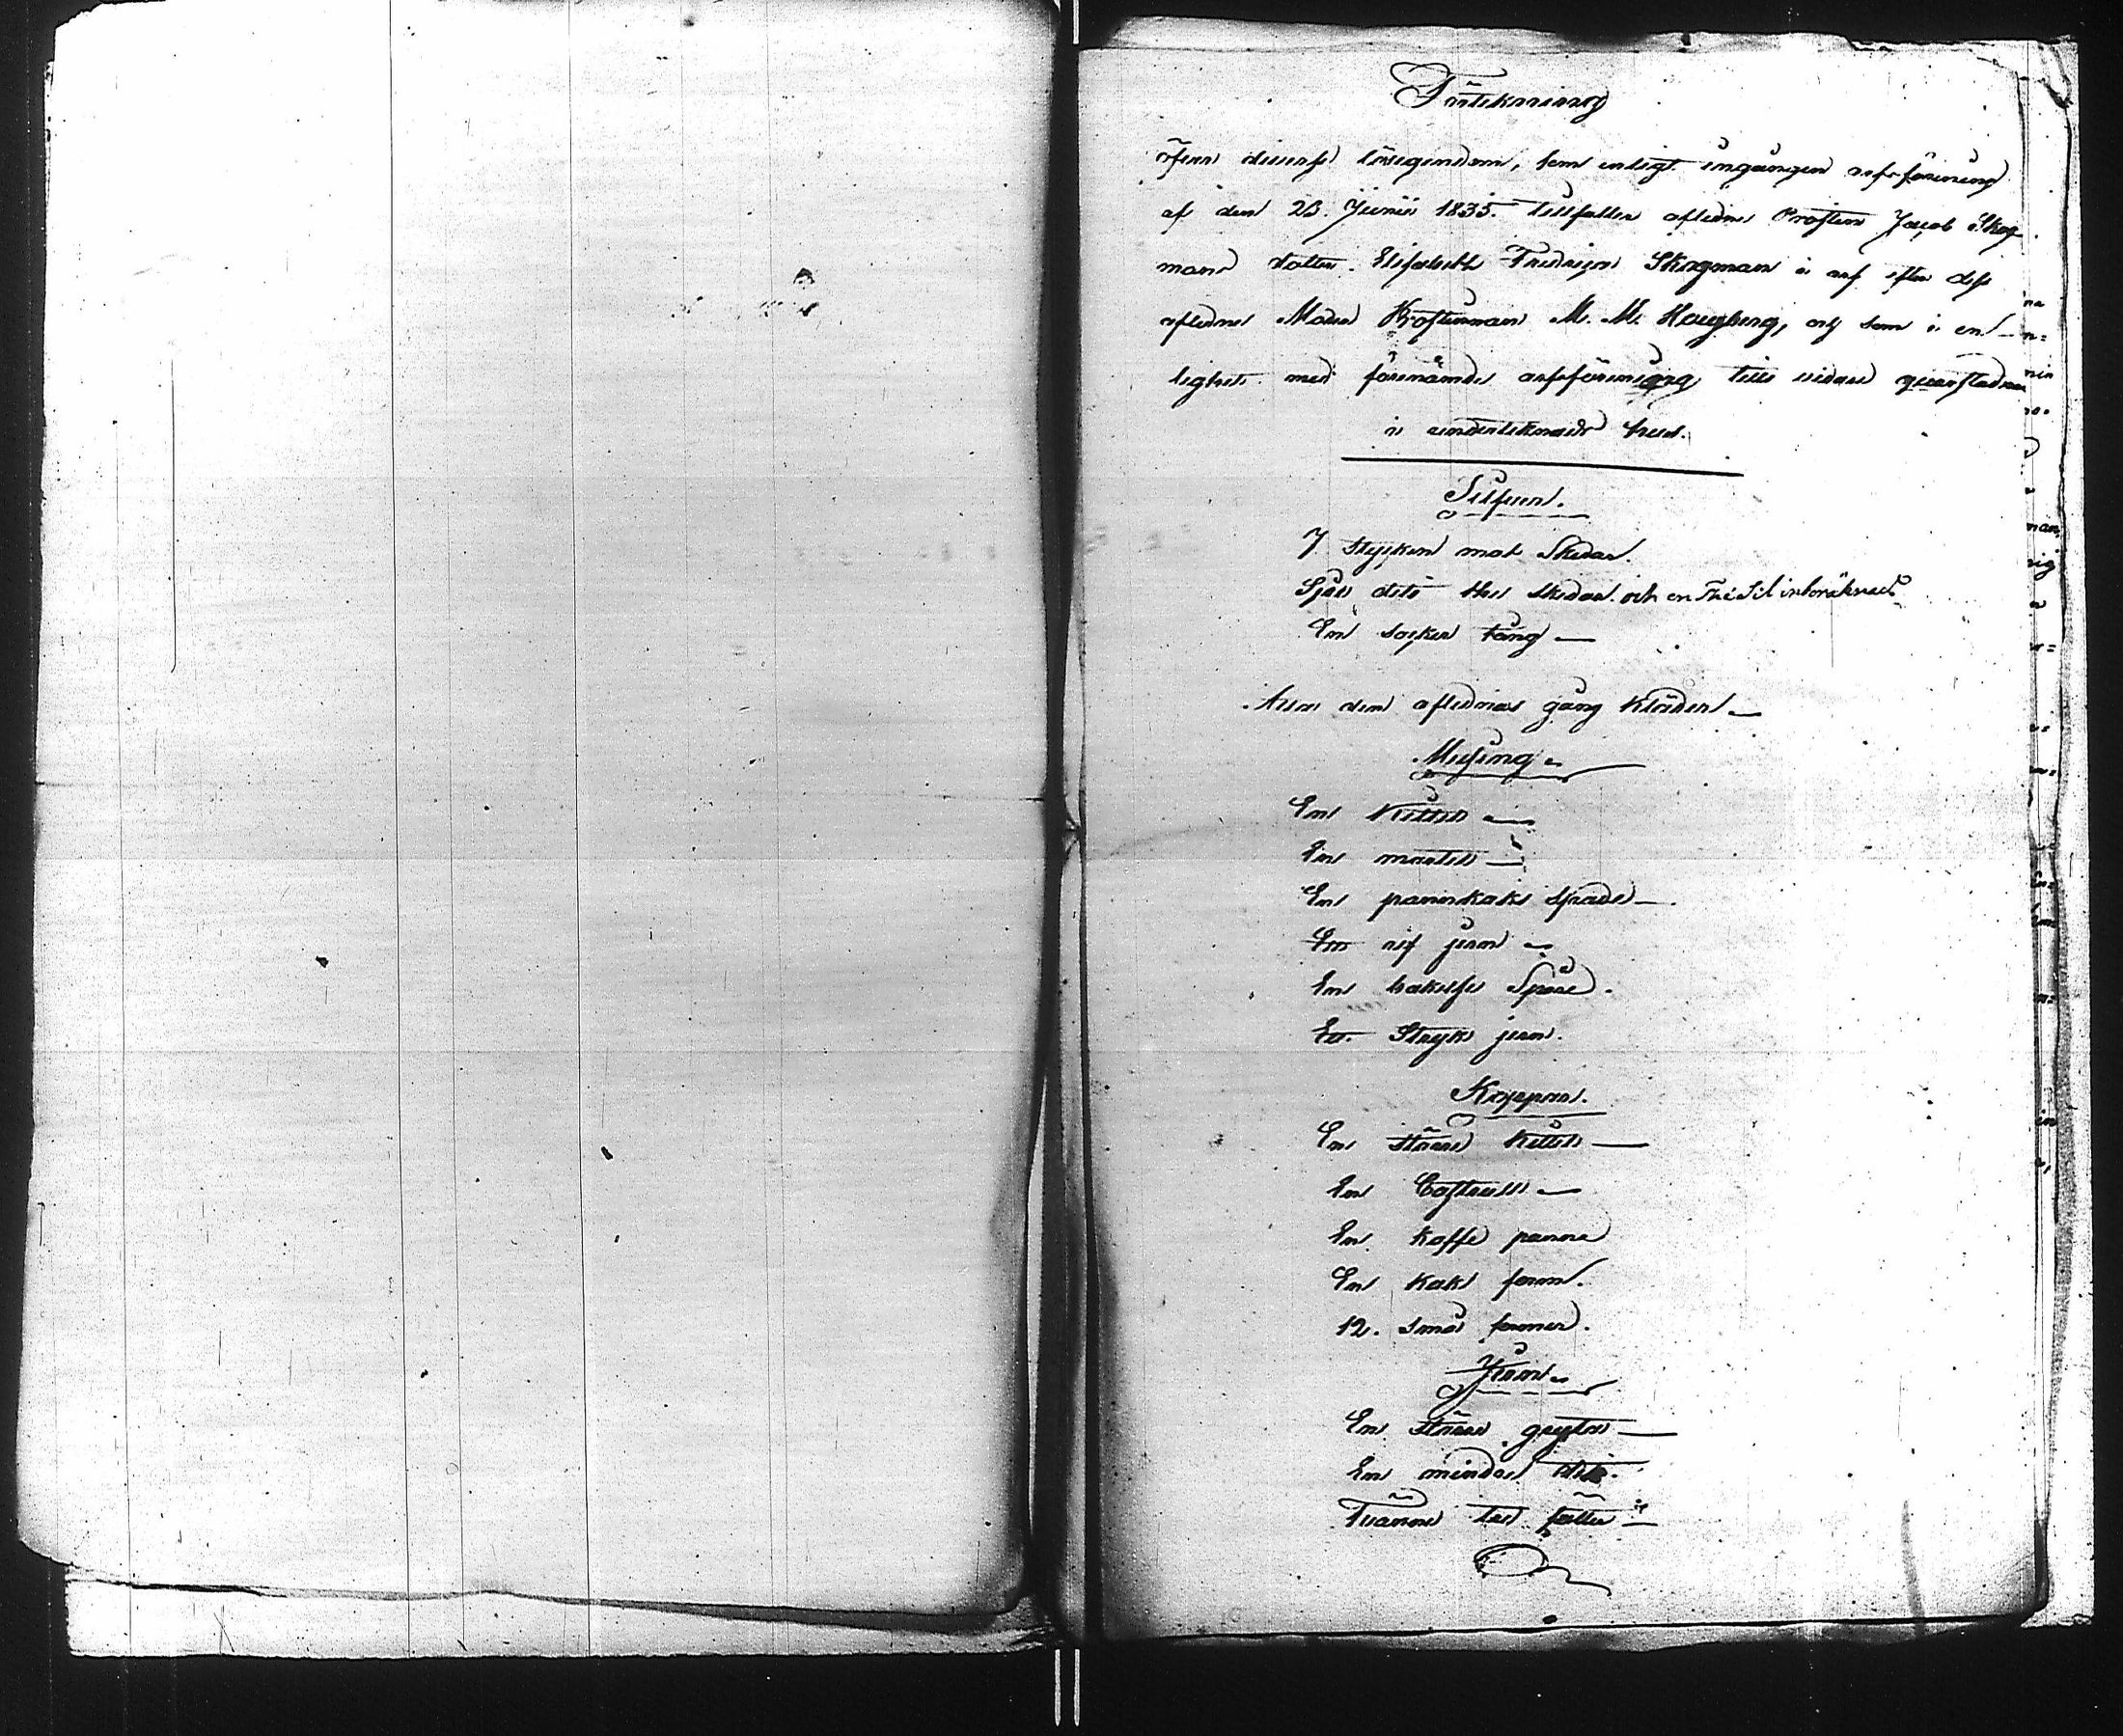 Förtekning
öfver diverse lösegendom, som enligt ingången arfsförening
af den 23. Junii 1835. tillfaller aflidne Prosten Jacob Skog
mans dotter. Elisabeth Fredrica Skogman i arf efter dess
aflidne Moder Prostinnan M. M. Haugberg, och som i en
lighet med förenämnde arfsförening till vidare qvarstadnar
i undertecknads hus.
Silfver.
7 stycken mat Skedar.
Sju dito thee skedar. och en The Sil inberäknad
En socker tång —
den aflidnas gång kläder —
Messing
En Kittel —
En mortel —
En pannkaks spade —
Ett rif jern —
En bakelse Sporre.
Ett Stryk jern.
Koppar.
En större kittel —
En Castrull —
En kaffe panna
En kak form.
12. små formor.
Jern
En större gryta —
En mindre dito.
Tvänne